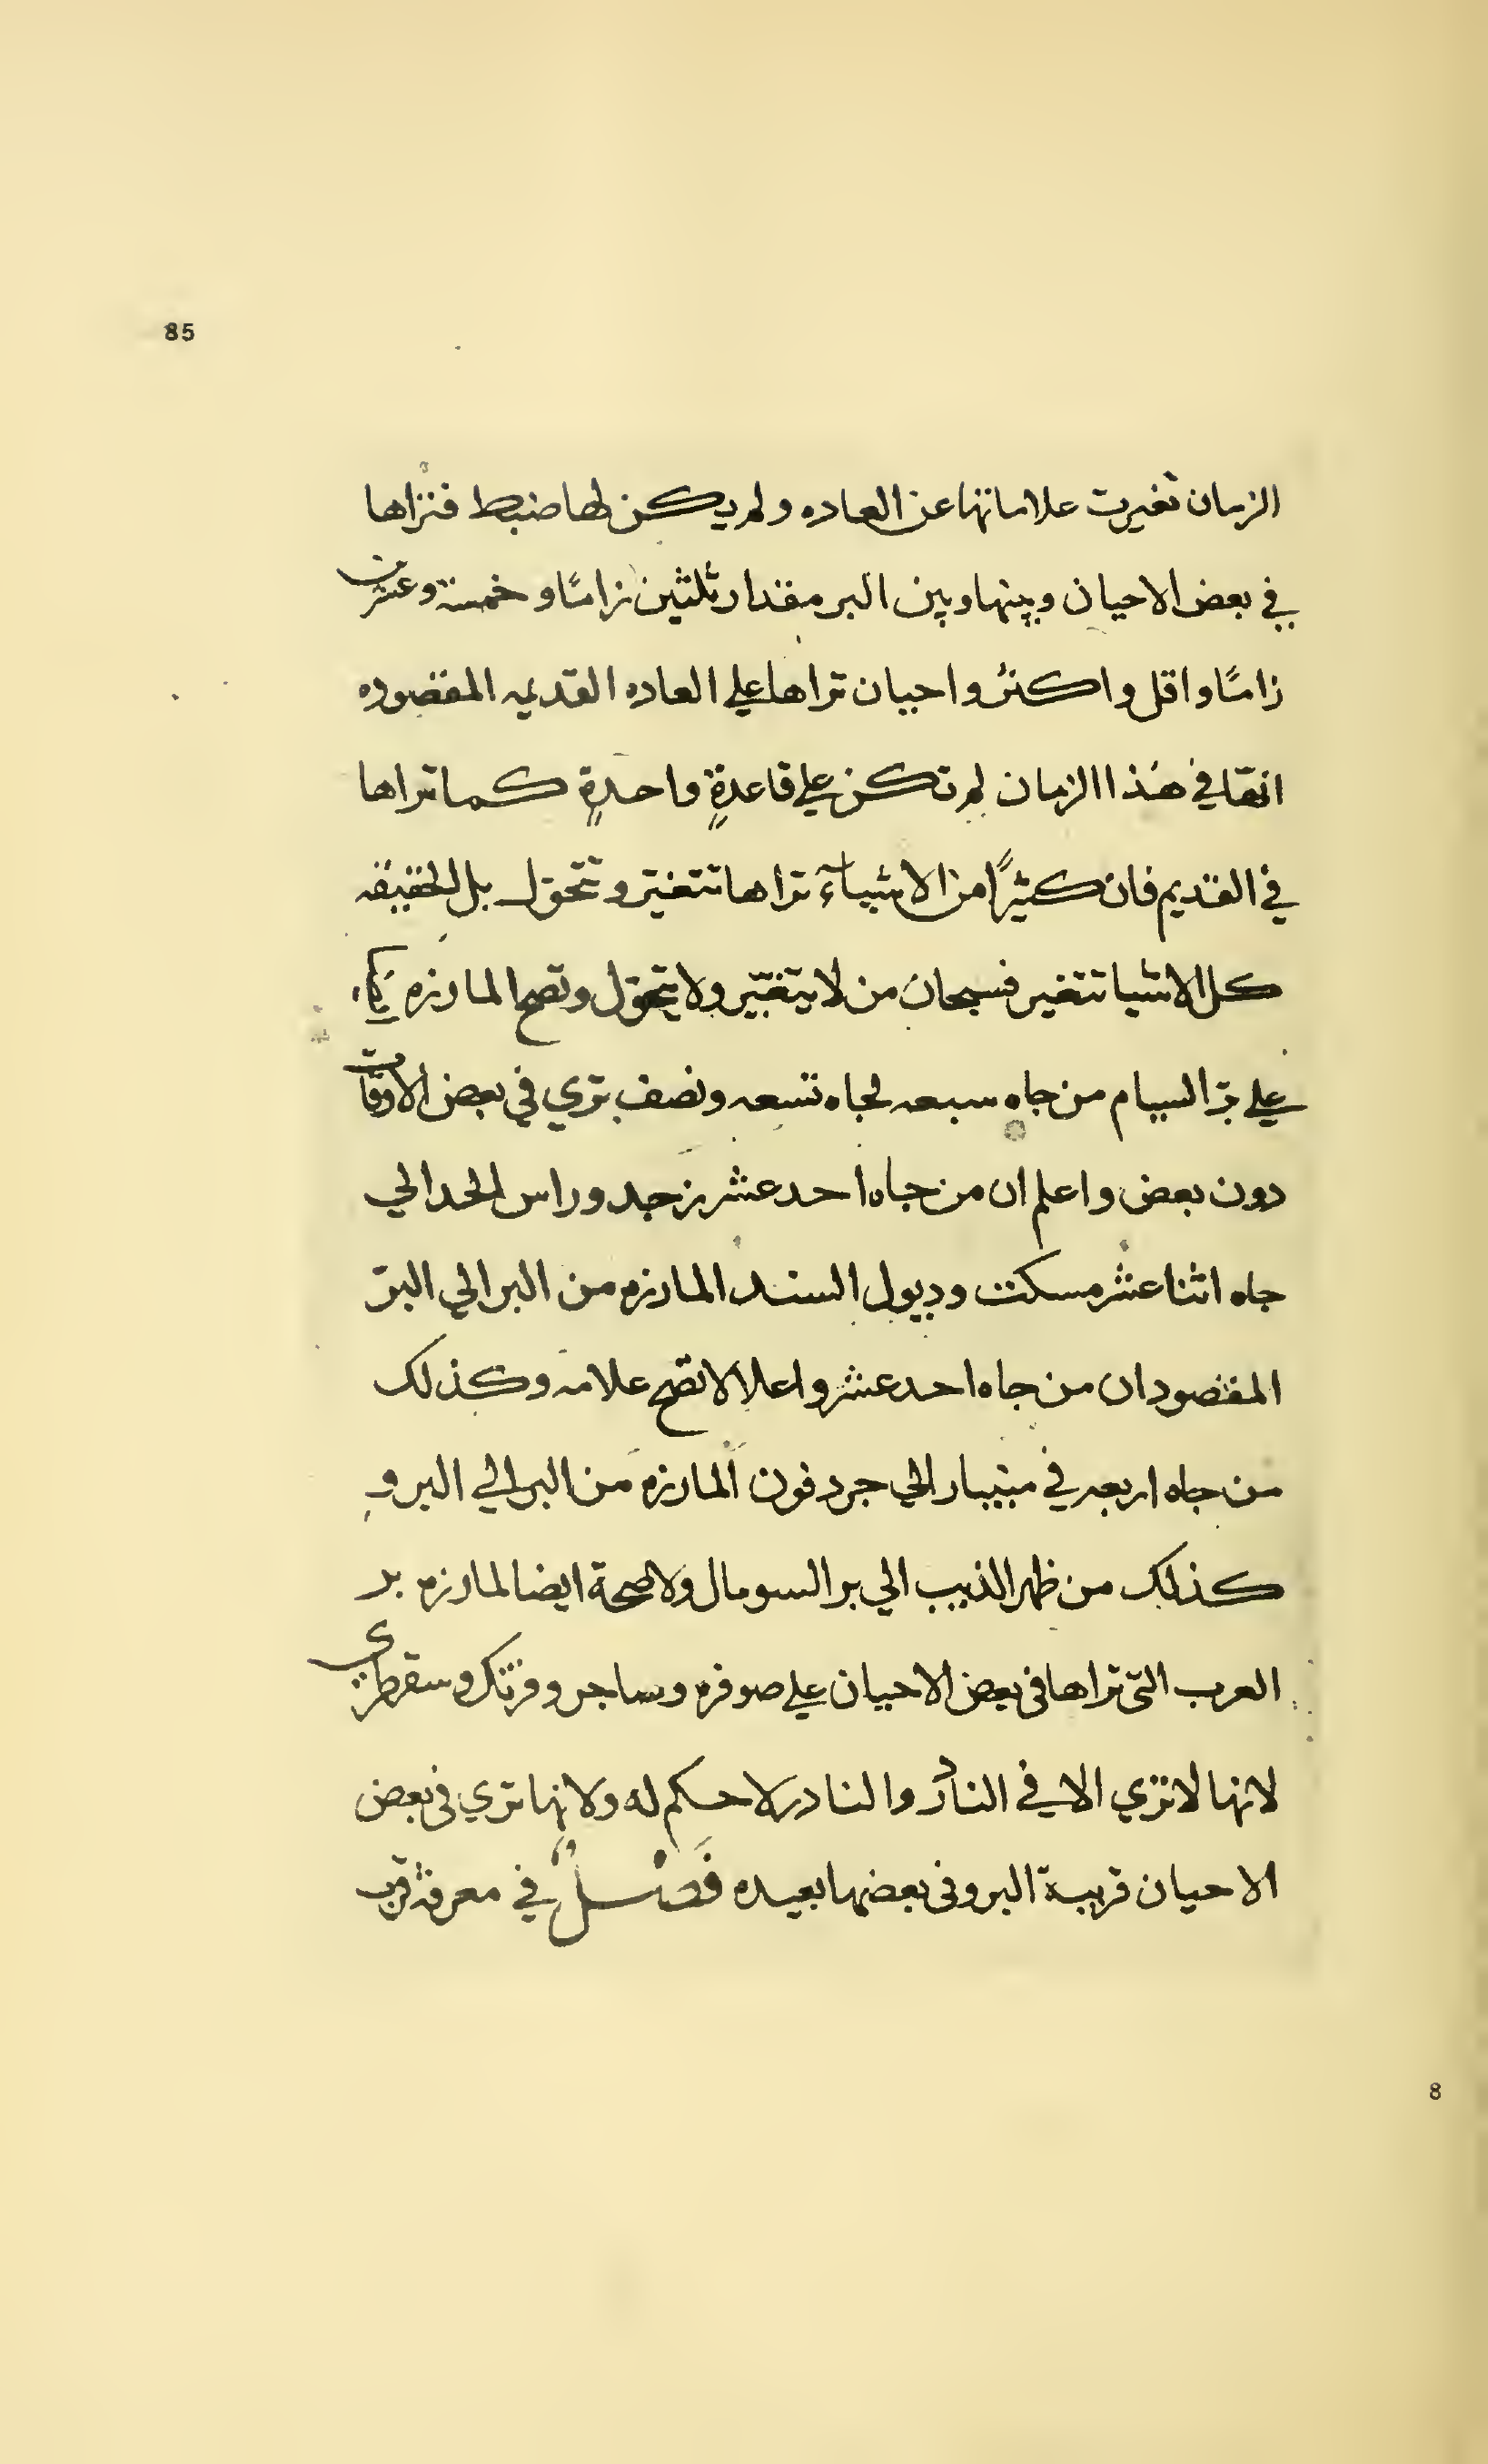 85
الزمان تغيرت علاماتها عن العاده ولم يكن لها ضبط فتراها
في بعض الاحيان وبينها وبين البر مقدار ثلثين زامًا وخمسة وعشرين
زامًا واقل واكثر واحيان تراها علي العاده القديمه المقصوده
انها في هذا الزمان لم تكن علي قاعدةٍ واحدةٍ كما تراها
في القديم فان كثيرًا من الاشياء تراها تتغير وتتحول بل الحقيقه
كل الاشيا تتغير فسبحان من لا يتغير ولا يتحول وتصح المارزه
علي بر السيام من جاه سبعه لجاه تسعه ونصف تري في بعض الاوقات
دون بعض واعلم ان من جاه احد عشر زجد وراس الحد الي
جاه اثنا عشر مسكت وديول السند المارزه من البر الي البر
المقصود ان من جاه احد عشر واعلا لا تصح علامه وكذلك
من جاه اربعه في منيبار الي جردفون المارزه من البر الي البر و
كذلك من ظهر الذيب الي بر السومال ولا صحة ايضا لمارزه بر
العرب التي تراها في بعض الاحيان علي صوقره وساجر وفرتك وسقطري
لانها لا تري الا في النادر والنادر لا حكم له ولانها تري في بعض
الاحيان قريبة البر وفي بعضها بعيده فَصْلٌ في معرفة قرب
8